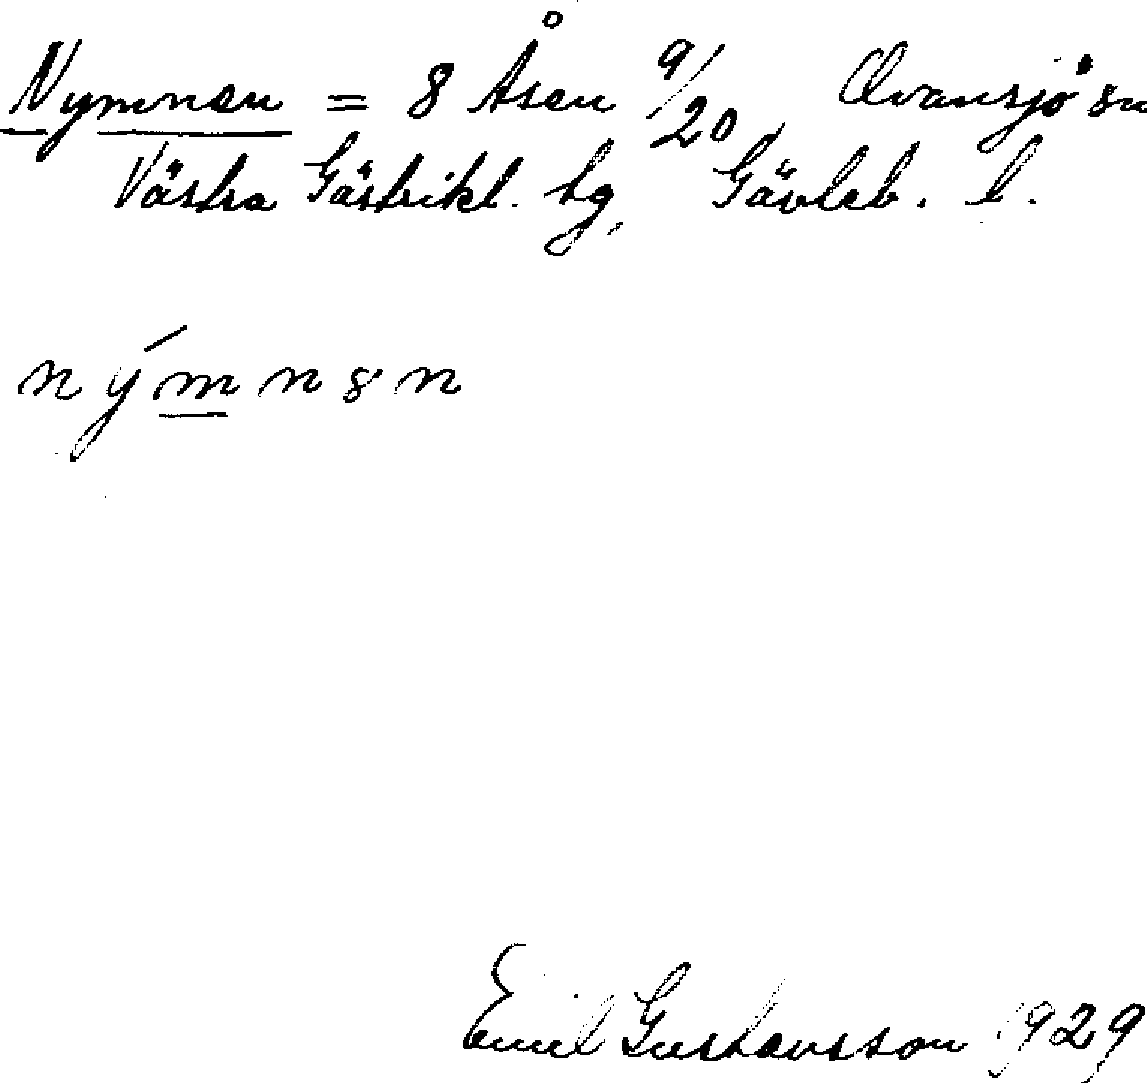 Nymnen = 8 Åsen 9/20 Ovansjö sn
Västra Gästrikl. tg, Gävleb. l.
nýmnən
Emil Gustavsson 1929